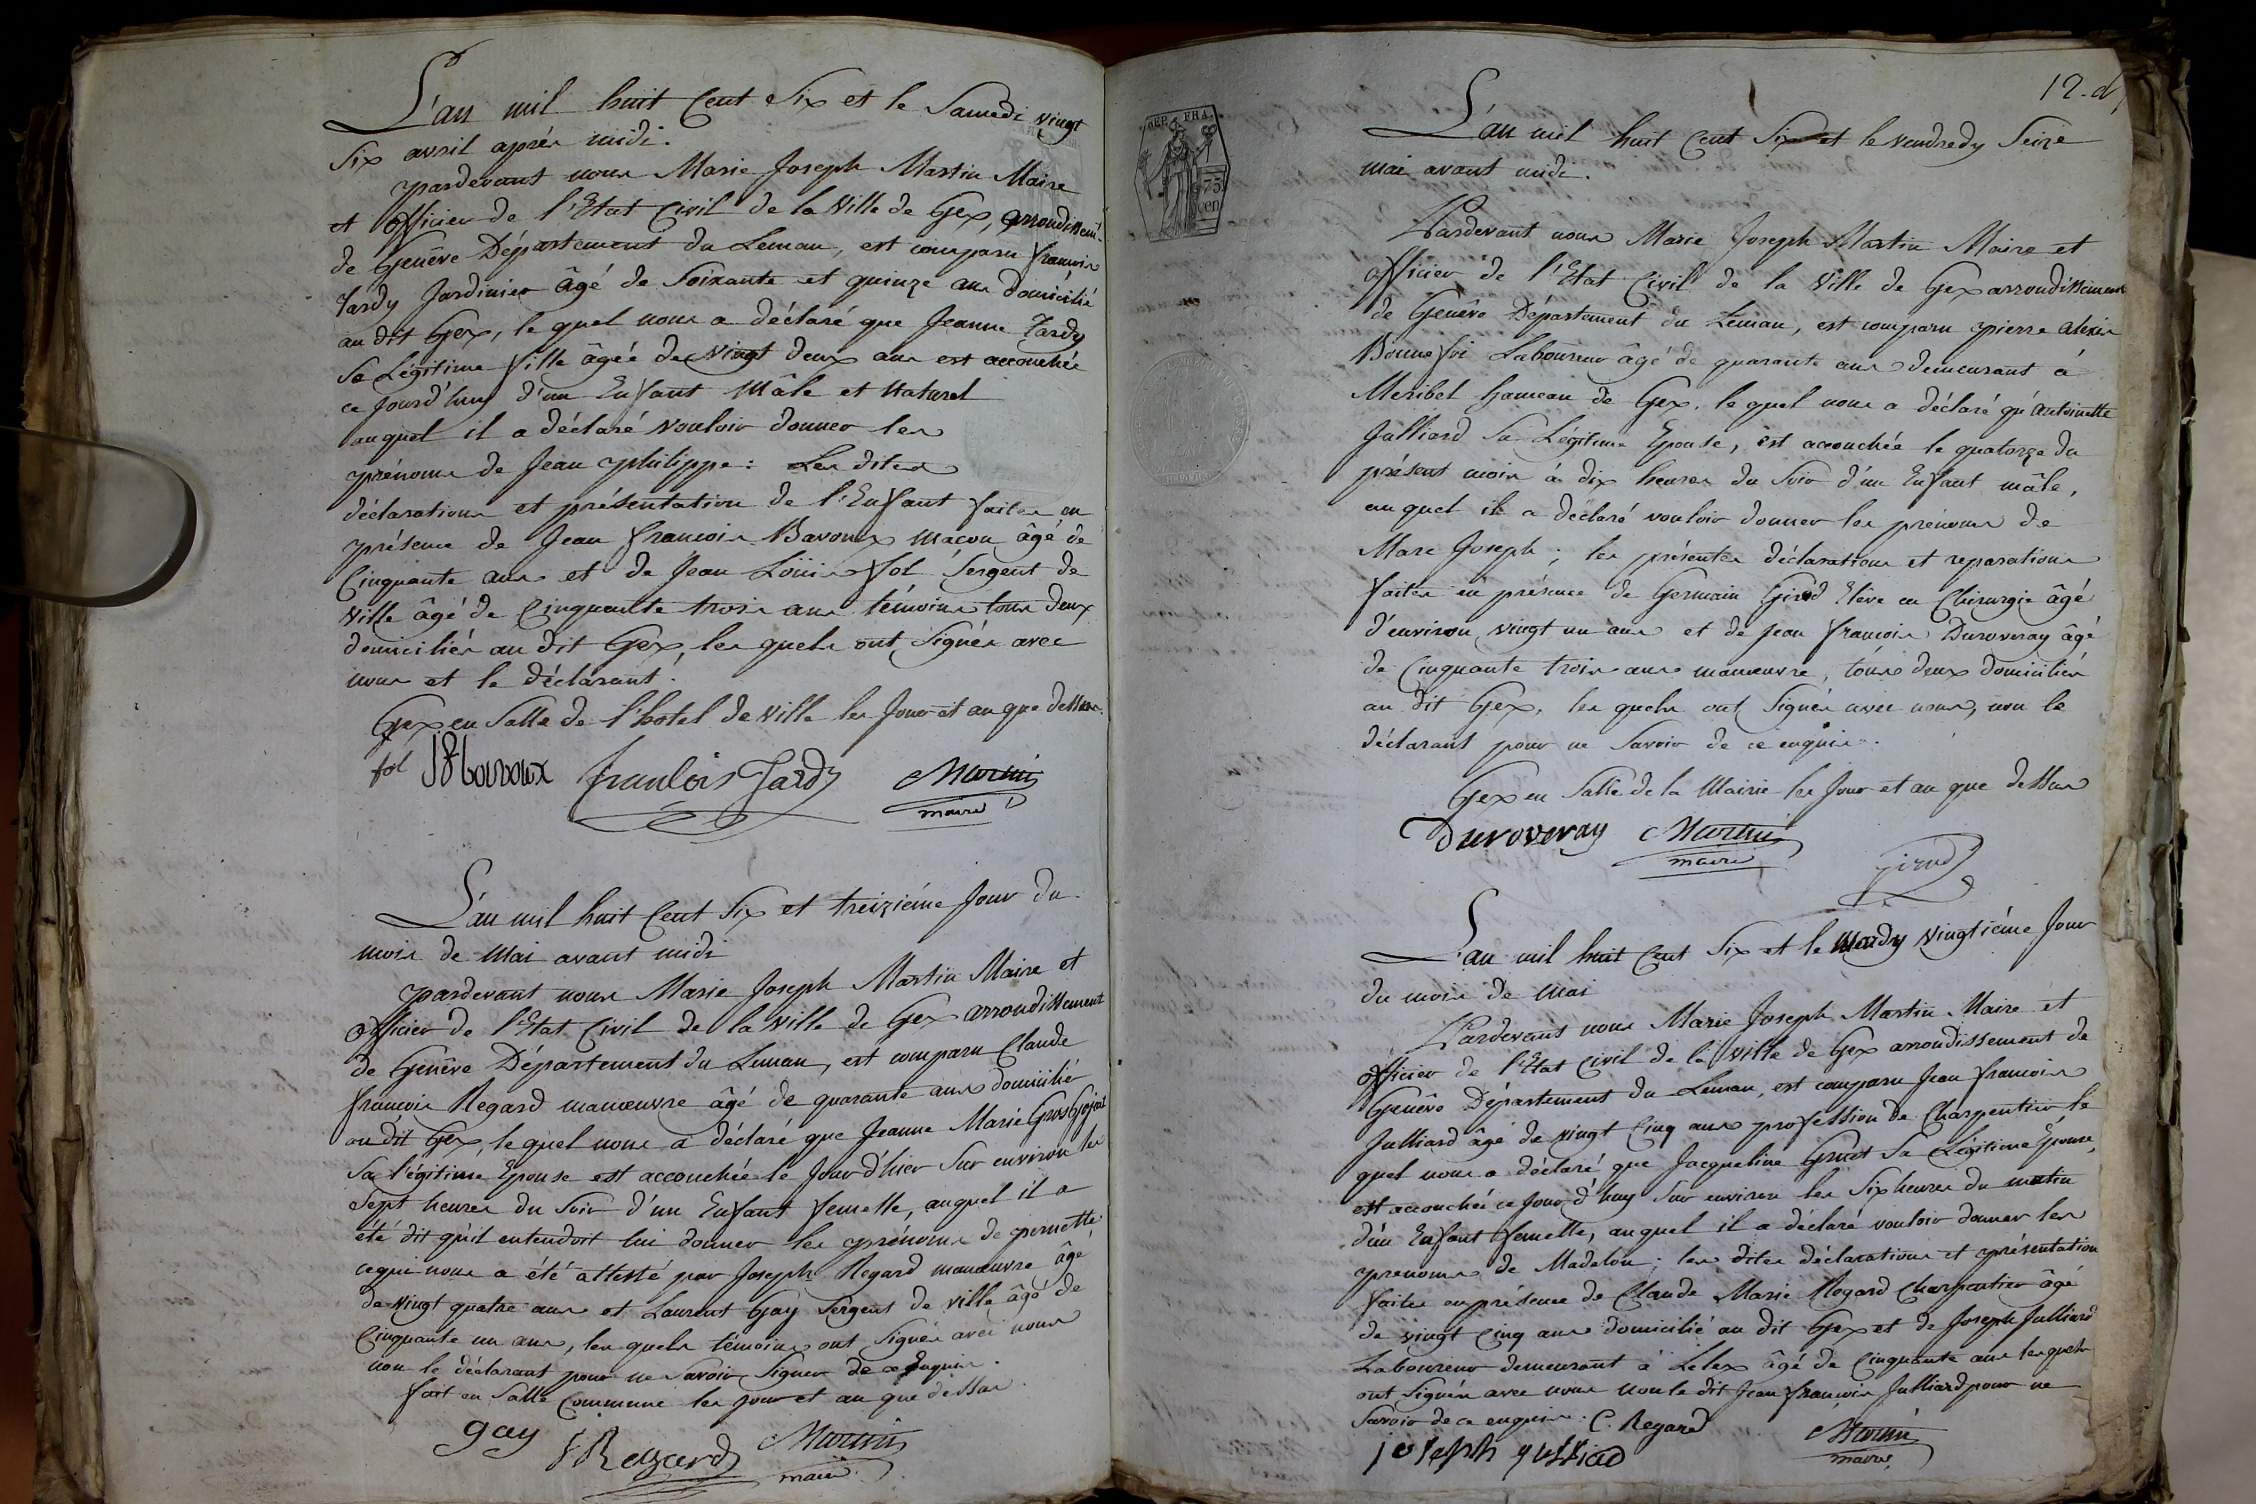 L'an mil huit Cent Six et le Samedi vingt
Six avril après midi.
pardevant nous Marie Joseph Martin Maire
et officier de l'Etat Civil de la Ville de Gex, arrondissemt
de Genêve Département du Leman, est comparu francois
Tardy Jardinier âgé de Soixante et quinze ans domicilié
au dit Gex, le quel nous a déclaré que Jeanne Tardy
Sa Légitime fille âgée de vingt deux ans est accouchée
ce Jourd'huy d'un Enfant Mâle et Naturel
auquel il a déclaré vouloir donner les
prénoms de Jean Philippe : Les dites
déclarations et présentation de l'Enfant faites en
présence de Jean francois Bavoux Macon âgé de
Cinquante ans et de Jean Loüis fol Sergent de
Ville âgé de Cinquante trois ans témoins tous deux
domiciliés au dit Gex, les quels ont Signés avec
nous et le déclarant.
Gex en Salle de l'hotel de Ville les Jour et an que dessus.
fol JF bavoux francois Tardy Martin
maire
L'an mil huit Cent Six et treizième Jour du
mois de Mai avant midi
pardevant nous Marie Joseph Martin Maire et
officier de l'Etat Civil de la Ville de Gex arrondissement
de Genêve Département du Leman, est comparu Claude
francois Regard manœuvre âgé de quarante ans domicilié
au dit Gex, le quel nous a déclaré que Jeanne Marie
Sa légitime Epouse est accouchée le Jour d'hier Sur environ les
Sept heures du Soir d'un Enfant femelle, auquel il a
été dit qu'il entendoit lui donner les prénoms de pernette,
ce qui nous a été attesté par Joseph Regard manœuvre âgé
de vingt quatre ans et Laurent Gay Sergent de ville âgé de
Cinquante un ans, les quels témoins ont Signés avec nous
non le déclarant pour ne Savoir Signer de ce Enquis.
fait en Salle Commune les jour et an que dessus.
gay J Regard Martin
maire
12. d
L'an mil huit Cent Six et le vendredy Seize
mai avant midi.
Pardevant nous Marie Joseph Martin Maire et
officier de l'Etat Civil de la Ville de Gex arrondissement
de Genêve Département du Leman, est comparu pierre alexis
Bonnefoi Laboureur âgé de quarante ans demeurant à
Meribel hameau de Gex. le quel nous a déclaré qu'Antoinette
Julliard Sa Légitime Epouse, est accouchée le quatorze du
présent mois à dix heures du Soir d'un Enfant mâle,
auquel il a déclaré vouloir donner les prénoms de
Marc Joseph ; les présentes déclarations et reparations
faites en présence de Germain Girod Elève en Chirurgie âgé
d'environ vingt un ans et de Jean francois Duroveray âgé
de Cinquante trois ans manœuvre, tous deux domiciliés
au dit Gex, les quels ont Signés avec nous, non le
déclarant pour ne Savoir de ce enquis.
Gex en Salle de la Mairie les Jour et an que dessus
Duroveray Martin Girod
maire
OEP. FRA.
75
Cen
L'an mil huit Cent Six et le Mardy vingtième Jour
du mois de Mai
Pardevant nous Marie Joseph Martin Maire et
officier de l'Etat Civil de la ville de Gex arrondissement de
Genêve Département du Leman, est comparu Jean francois
Julliard âgé de vingt Cinq ans profession de Charpentier, le
quel nous a déclaré que Jacqueline Sa Légitime Épouse,
est accouchée ce Jour d'huy Sur environ les Six heures du matin
d'un Enfant femelle, auquel il a déclaré vouloir donner les
prenoms de Madelon ; les dites déclarations et présentation
faites en présence de Claude Marie Regard Charpentier âgé
de vingt Cinq ans domicilié au dit Gex et de Joseph Julliard
Laboureur demeurant à Lelex âgé de Cinquante ans les quels
ont Signés avec nous non le dit Jean francois Julliard pour ne
Savoir de ce enquis. C. Regard Martin
joseph julliard maire